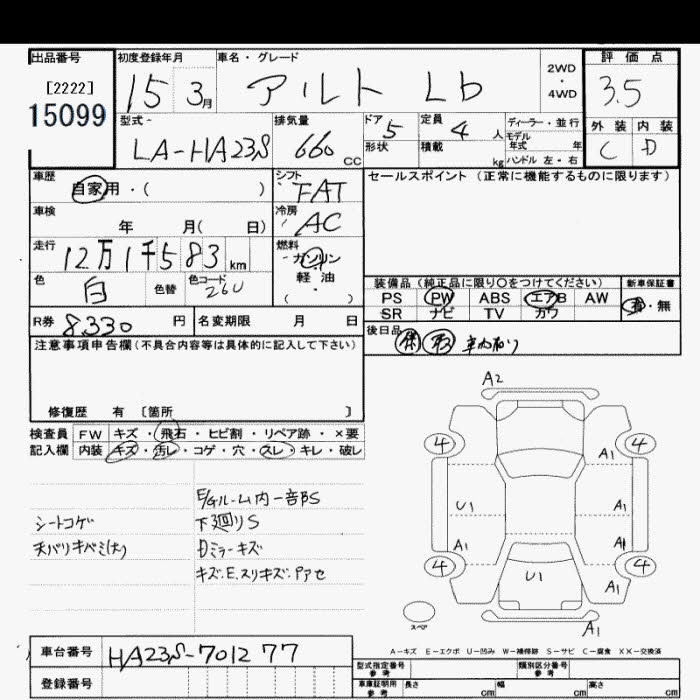 出品番号 初度登録年月 車名・グレード 評価点
[2222] 15 3月 アルト Lb 2WD・4WD 3.5
15099
型式 排気量 ドア 5 定員 4人 ディーラー・並行 外装 内装
LA-HA23S 660 CC 形状 積載 kg モデル年式 年 C D
ハンドル 左・右
車歴 シフト セールスポイント (正常に機能するものに限ります)
自家用・( ) FAT
車検 冷房
年 月( 日) AC
走行 燃料
12万1千583km ガソリン
色 白 色替 色コード 26U 軽油
( ・ )
装備品 (純正品に限り○をつけてください) 新車保証書
PS PW ABS エアB AW 有・無
SR ナビ TV カワ
R券 8,330円 名変期限 月 日 後日品
注意事項申告欄(不具合内容等は具体的に記入して下さい)
修復歴 有 〔箇所 〕
検査員 FW キズ・飛石・ヒビ割・リペア跡・×要
記入欄 内装 キズ・汚レ・コゲ・穴・スレ・キレ・破レ
E/Gルーム内一部S
シートコゲ 下廻りS
天バリキバミ(大) Dミラーキズ
キズ.E.スリキズ.Pアセ
A2
4 4
A1
U1 A1
A1 A1
4 4
U1 A1
A1
スペア
A-キズ E-エクボ U-凹み W-補修跡 S-サビ C-腐食 XX-交換済
車台番号 HA23S-701277
登録番号
型式指定番号 参考 類別区分番号 参考
車庫証明用 参考 長さ cm 幅 cm 高さ cm